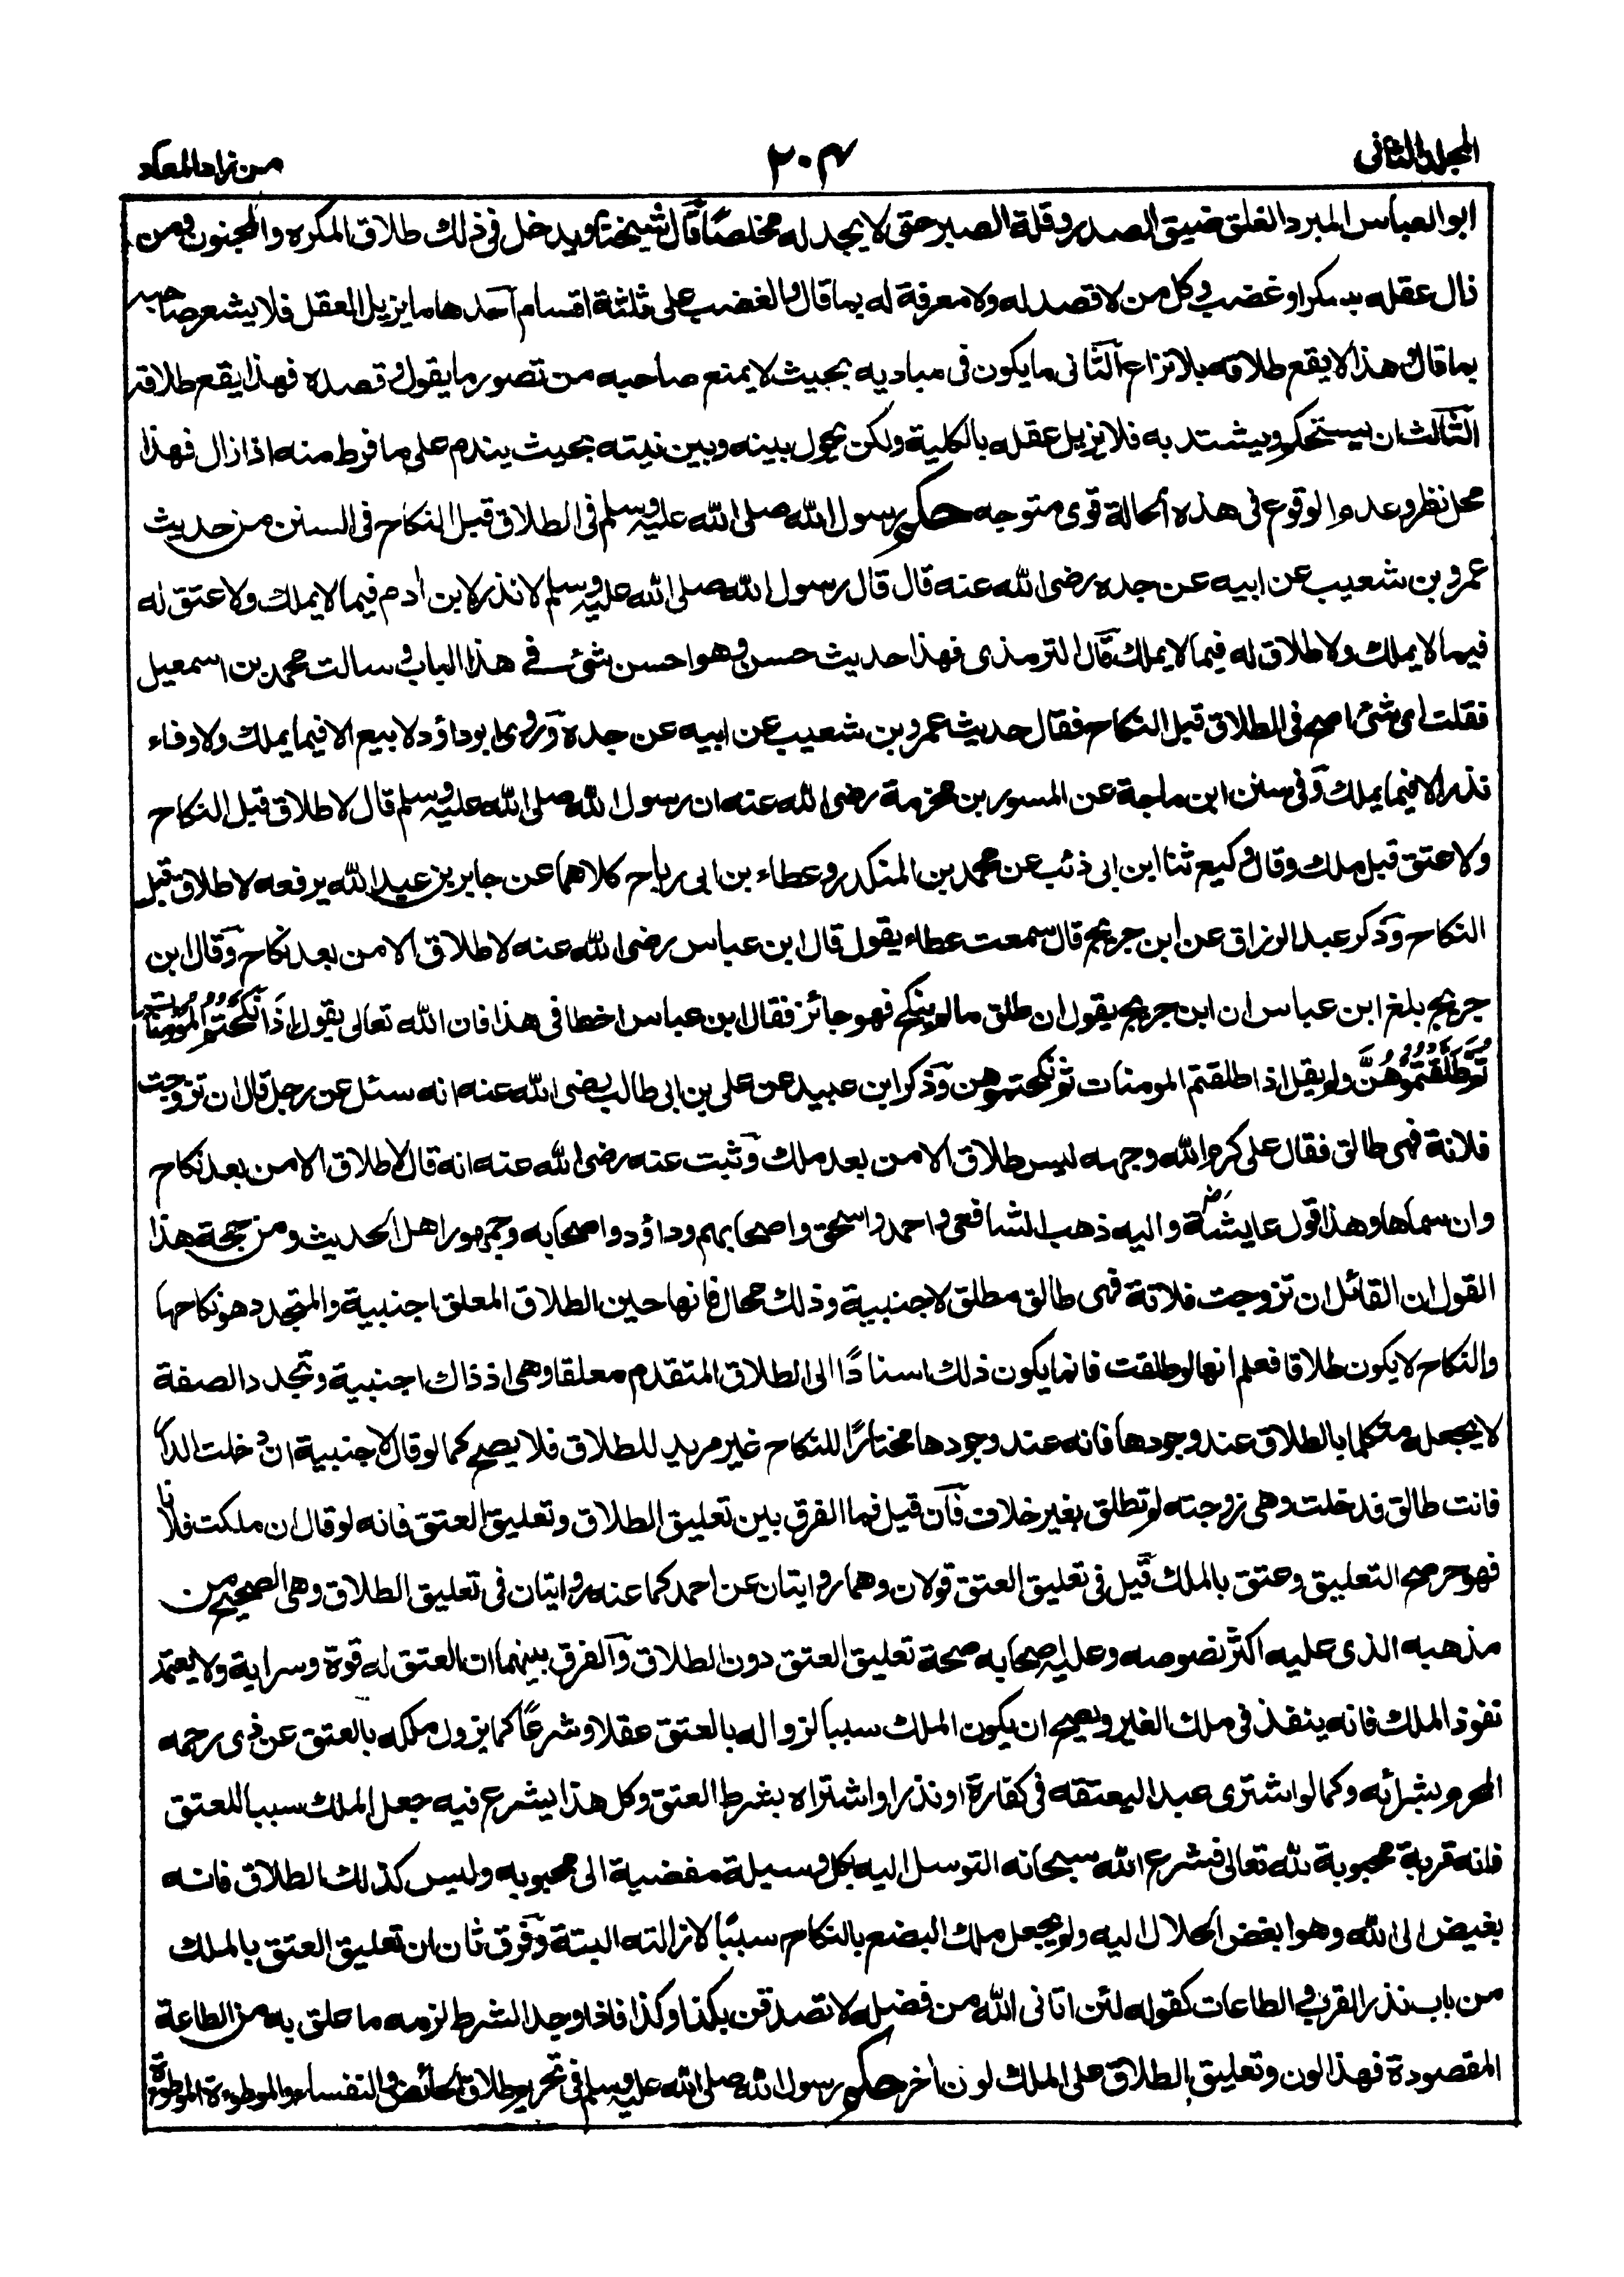 المجلد الثانى
٢٠٤
من زاد المعاد
ابو العباس المبرد الغلق ضيق الصدر و قلة الصبر حتى لا يجد له مخلصًا قال شيخنا ويدخل فى ذلك طلاق المكره والمجنون ومن
زال عقله بسكر او غضب وكل من لا قصد له ولا معرفة له بما قال والغضب على ثلثة اقسام احدها ما يزيل العقل فلا يشعر صاحبه
بما قال وهذا لا يقع طلاقه بلا نزاع الثانى ما يكون فى مباديه بحيث لا يمنع صاحبه من تصور ما يقول و قصده فهذا يقع طلاقه
الثالث ان يستحكم ويشتد به فلا يزيل عقله بالكلية ولكن يحول بينه وبين نيته بحيث يندم على ما فرط منه اذا زال فهذا
محل نظر وعدم الوقوع فى هذه الحالة قوى متوجه حكم رسول الله صلى الله عليه وسلم فى الطلاق قبل النكاح فى السنن من حديث
عمرو بن شعيب عن ابيه عن جده رضى الله عنه قال قال رسول الله صلى الله عليه وسلم لا نذر لابن ادم فيما لا يملك ولا عتق له
فيما لا يملك ولا طلاق له فيما لا يملك قال الترمذى فهذا حديث حسن وهو احسن شئ فى هذا الباب و سالت محمد بن اسمعيل
فقلت اى شئ اصح فى الطلاق قبل النكاح فقال حديث عمرو بن شعيب عن ابيه عن جده وروى ابو داؤد لا بيع الا فيما يملك ولا وفاء
نذر الا فيما يملك وفى سنن ابن ماجة عن المسور بن مخرمة رضى الله عنه ان رسول الله صلى الله عليه وسلم قال لا طلاق قبل النكاح
ولا عتق قبل ملك وقال وكيع ثنا ابن ابى ذئب عن محمد بن المنكدر و عطاء بن ابى رباح كلاهما عن جابر بن عبد الله يرفعه لا طلاق قبل
النكاح وذكر عبد الرزاق عن ابن جريج قال سمعت عطاء يقول قال ابن عباس رضى الله عنه لا طلاق الا من بعد نكاح وقال ابن
جريج بلغ ابن عباس ان ابن جريج يقول ان طلق ما لم ينكح فهو جائز فقال ابن عباس اخطا فى هذا فان الله تعالى يقول اِذَا نَكَحْتُمُ الْمُؤْمِنَاتِ
ثُمَّ طَلَّقْتُمُوْهُنَّ ولم يقل اذا طلقتم المومنات ثم نكحتموهن وذكر ابن عبيد عن على بن ابى طالب رضى الله عنه انه سئل عن رجل قال ان تزوجت
فلانة فهى طالق فقال على كرم الله وجهه ليس طلاق الا من بعد ملك وثبت عنه رضى الله عنه انه قال لا طلاق الا من بعد نكاح
وان سماها وهذا قول عايشة رض واليه ذهب الشافعى و احمد و اسحق واصحابهم وداؤد واصحابه وجمهور اهل الحديث ومن حجة هذا
القول ان القائل ان تزوجت فلانة فهى طالق مطلق لاجنبية وذلك محال فانها حين الطلاق المعلق اجنبية والمتجدد هو نكاحها
والنكاح لا يكون طلاقا فعلم انها لو طلقت فانما يكون ذلك اسنادًا الى الطلاق المتقدم معلقا وهى اذ ذاك اجنبية وتجدد الصفة
لا يجعله متكلما بالطلاق عند وجودها فانه عند وجودها مختارًا للنكاح غير مريد للطلاق فلا يصح كما لو قال لاجنبية ان دخلت الدار
فانت طالق فدخلت وهى زوجته لم تطلق بغير خلاف فان قيل فما الفرق بين تعليق الطلاق وتعليق العتق فانه لو قال ان ملكت فلانا
فهو حر صح التعليق وعتق بالملك قيل فى تعليق العتق قولان وهما روايتان عن احمد كما عنه روايتان فى تعليق الطلاق وهى الصحيح من
مذهبه الذى عليه اكثر نصوصه وعليه اصحابه صحة تعليق العتق دون الطلاق والفرق بينهما ان العتق له قوة وسراية ولا يعتمد
نفوذ الملك فانه ينفذ فى ملك الغير ويصح ان يكون الملك سببا لزواله بالعتق عقلا وشرعًا كما يزول ملكه بالعتق عن ذى رحمه
المحرم بشرائه وكما لو اشترى عبدا ليعتقه فى كفارة او نذر او اشتراه بشرط العتق وكل هذا يشرع فيه جعل الملك سببا للعتق
فانه قربة محبوبة لله تعالى فشرع الله سبحانه التوسل اليه بكل وسيلة مفضية الى محبوبه وليس كذلك الطلاق فانه
بغيض الى الله وهو ابغض الحلال اليه ولم يجعل ملك البضع بالنكاح سببًا لازالته البتة وفرق ثان ان تعليق العتق بالملك
من باب نذر القرب و الطاعات كقوله لئن اتانى الله من فضله لاتصدقن بكذا وكذا فاذا وجد الشرط لزمه ما علق به من الطاعة
المقصودة فهذا لون وتعليق الطلاق على الملك لون اخر حكم رسول الله صلى الله عليه وسلم فى تحريم طلاق الحائض والنفساء والموطوءة